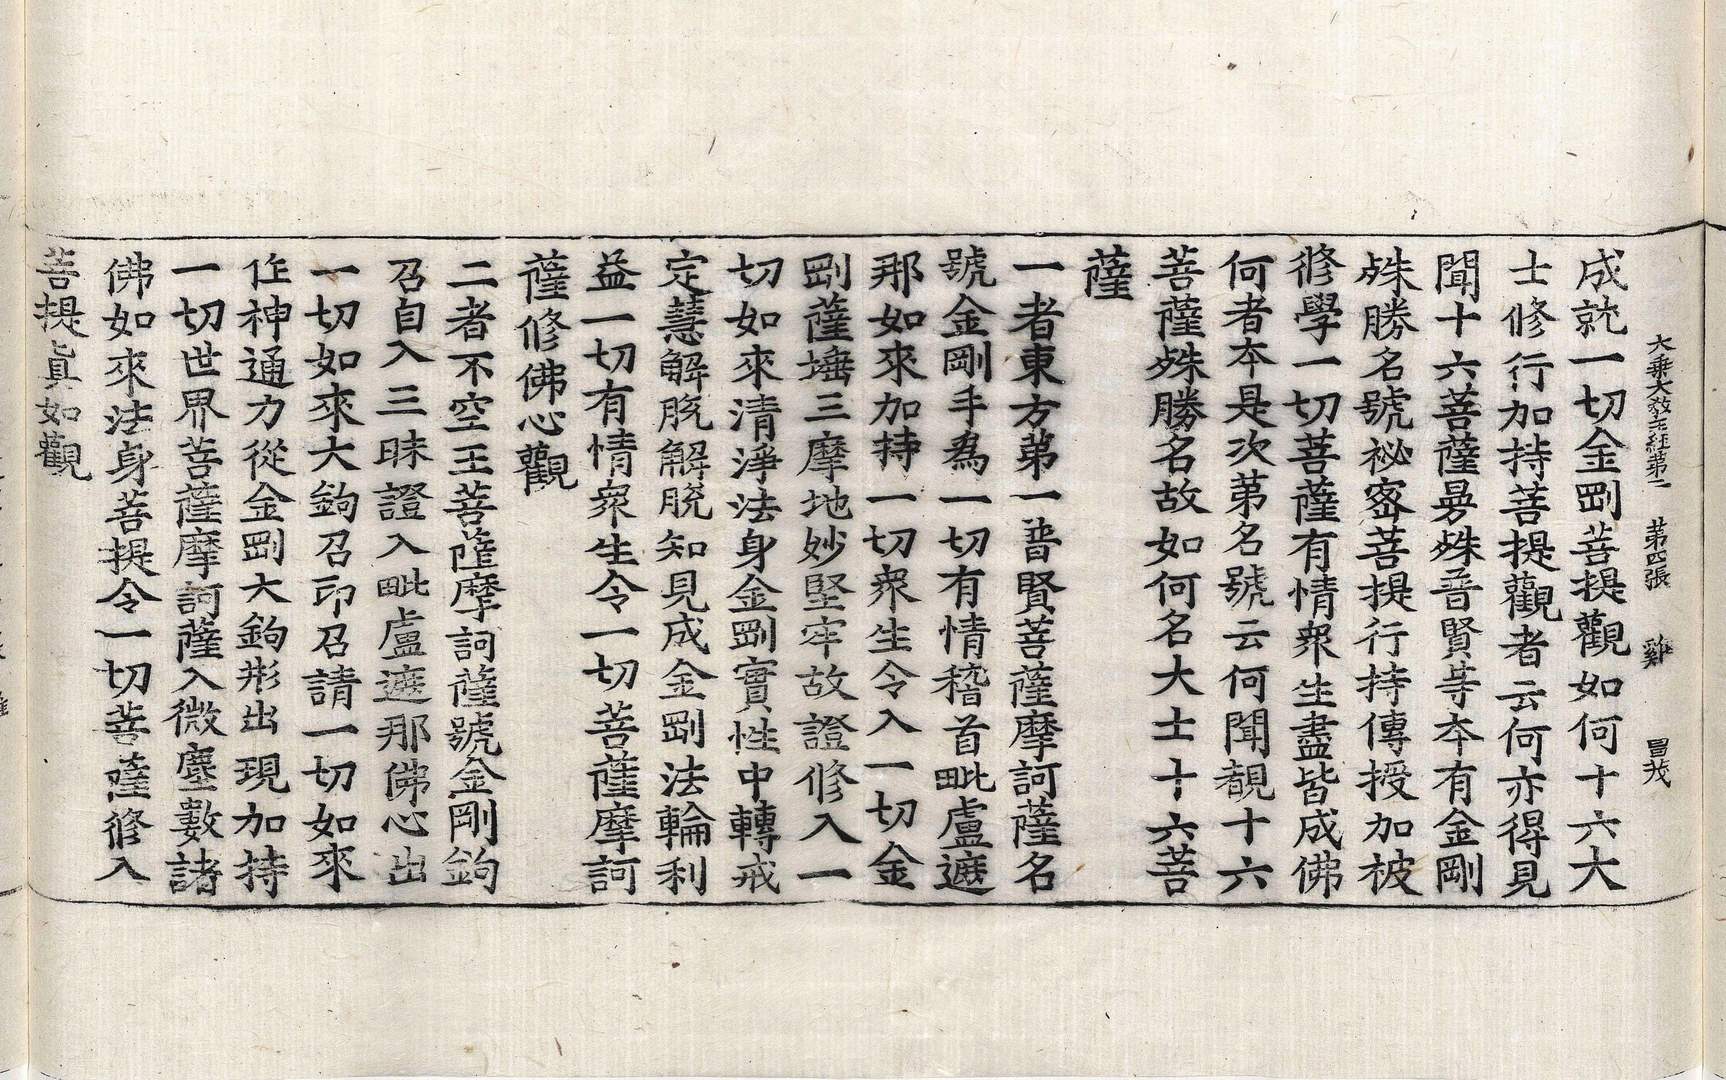 大乗大教王経第二　第四張　雞　冒茂
成就一切金剛菩提觀如何十六大
士修行加持菩提觀者云何亦得見
聞十六菩薩㝵殊普賢等夲有金剛
殊勝名號祕密菩提行持傳授加被
修學一切菩薩有情衆生盡皆成佛
何者夲是次第名號云何聞覩十六
菩薩殊勝名故如何名大士十六菩
薩
一者東方第一普賢菩薩摩訶薩名
號金剛手為一切有情稽首毗盧遮
那如來加持一切衆生令入一切金
剛薩埵三摩地妙堅牢故證修入一
切如來清淨法身金剛實性中轉戒
定慧解脫解脫知見成金剛法輪利
益一切有情衆生令一切菩薩摩訶
薩修佛心觀
二者不空王菩薩摩訶薩號金剛鉤
召自入三昧證入毗盧遮那佛心出
一切如來大鉤召印召請一切如來
作神通力從金剛大鉤形出現加持
一切世界菩薩摩訶薩入微塵數諸
佛如來法身菩提令一切菩薩修入
菩提真如觀